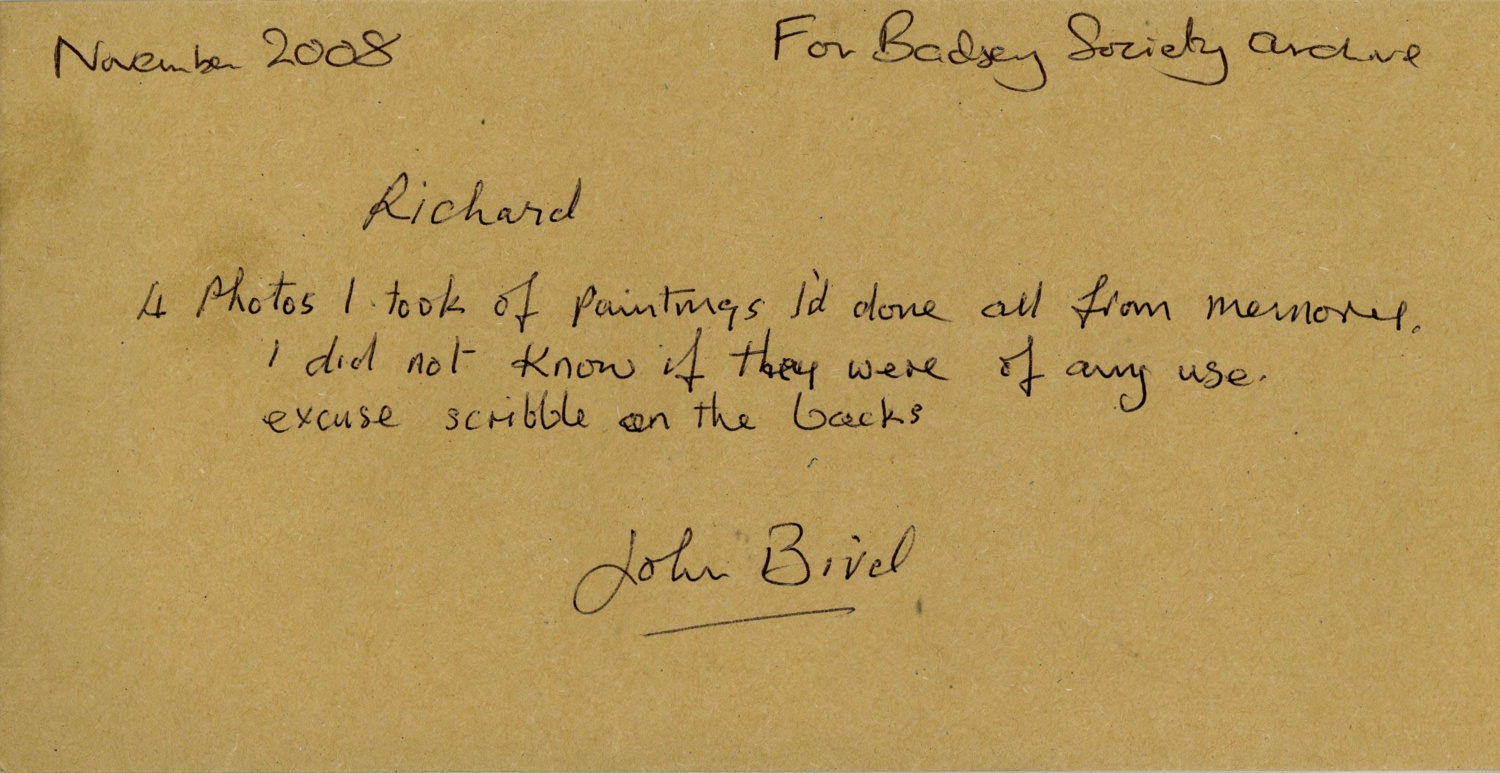 November 2008 For Badsey Society archive
Richard
4 Photos I took of paintings I'd done all from memories.
I did not know if they were of any use.
excuse scribble on the backs
John Bird